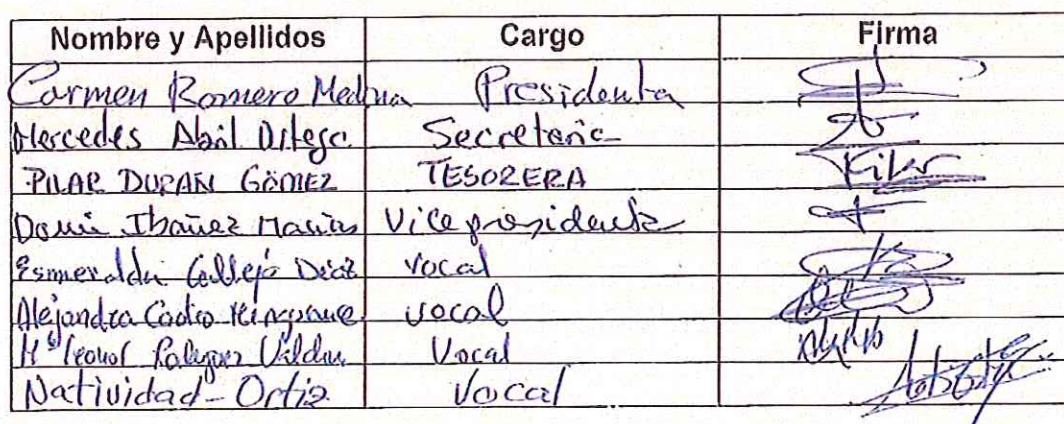 Nombre y Apellidos Cargo Firma
Carmen Romero Medina Presidenta
Mercedes Abril Ortega Secretaria
PILAR DURAN GÓMEZ TESORERA Pilar
Ibañez Macías Vicepresidenta
Esmeralda Callejo Díaz Vocal
Alejandra Castro vocal
Mª Leonor Vocal
Natividad - Ortiz Vocal